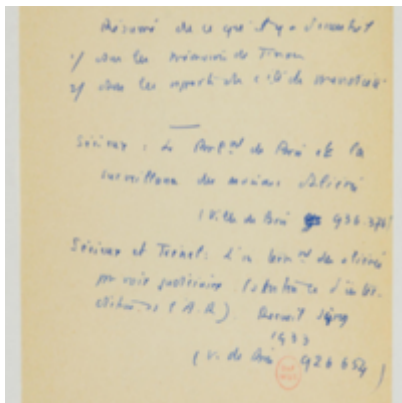 Résumé de ce qu'il y a d'essentiel
1/ dans les mémoires de Tinon
2/ dans les
Sérieux : Le Parl.nt de Paris et la
surveillance des maisons d'aliénés
(Ville de Paris 936.376)
Sérieux et Trénel : L'in des aliénés
par voie judiciaire. (Sentence d'inter-
diction (A.R.). Recueil Sirey
1933
(V. de Paris 926 654)